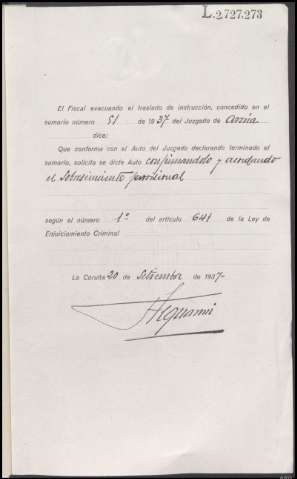 L.2.727.273
El Fiscal evacuando el traslado de instrucción, concedido en el
sumario número 51 de 1937 del Juzgado de
dice:
Que conforme con el Auto del Juzgado declarando terminado el
sumario, solicita se dicte Auto confirmandolo y acordando
el sobreseimiento provisional
según el número 1º del artículo 641 de la Ley de
Enjuiciamiento Criminal
La Coruña 20 de Setiembre de 1937-